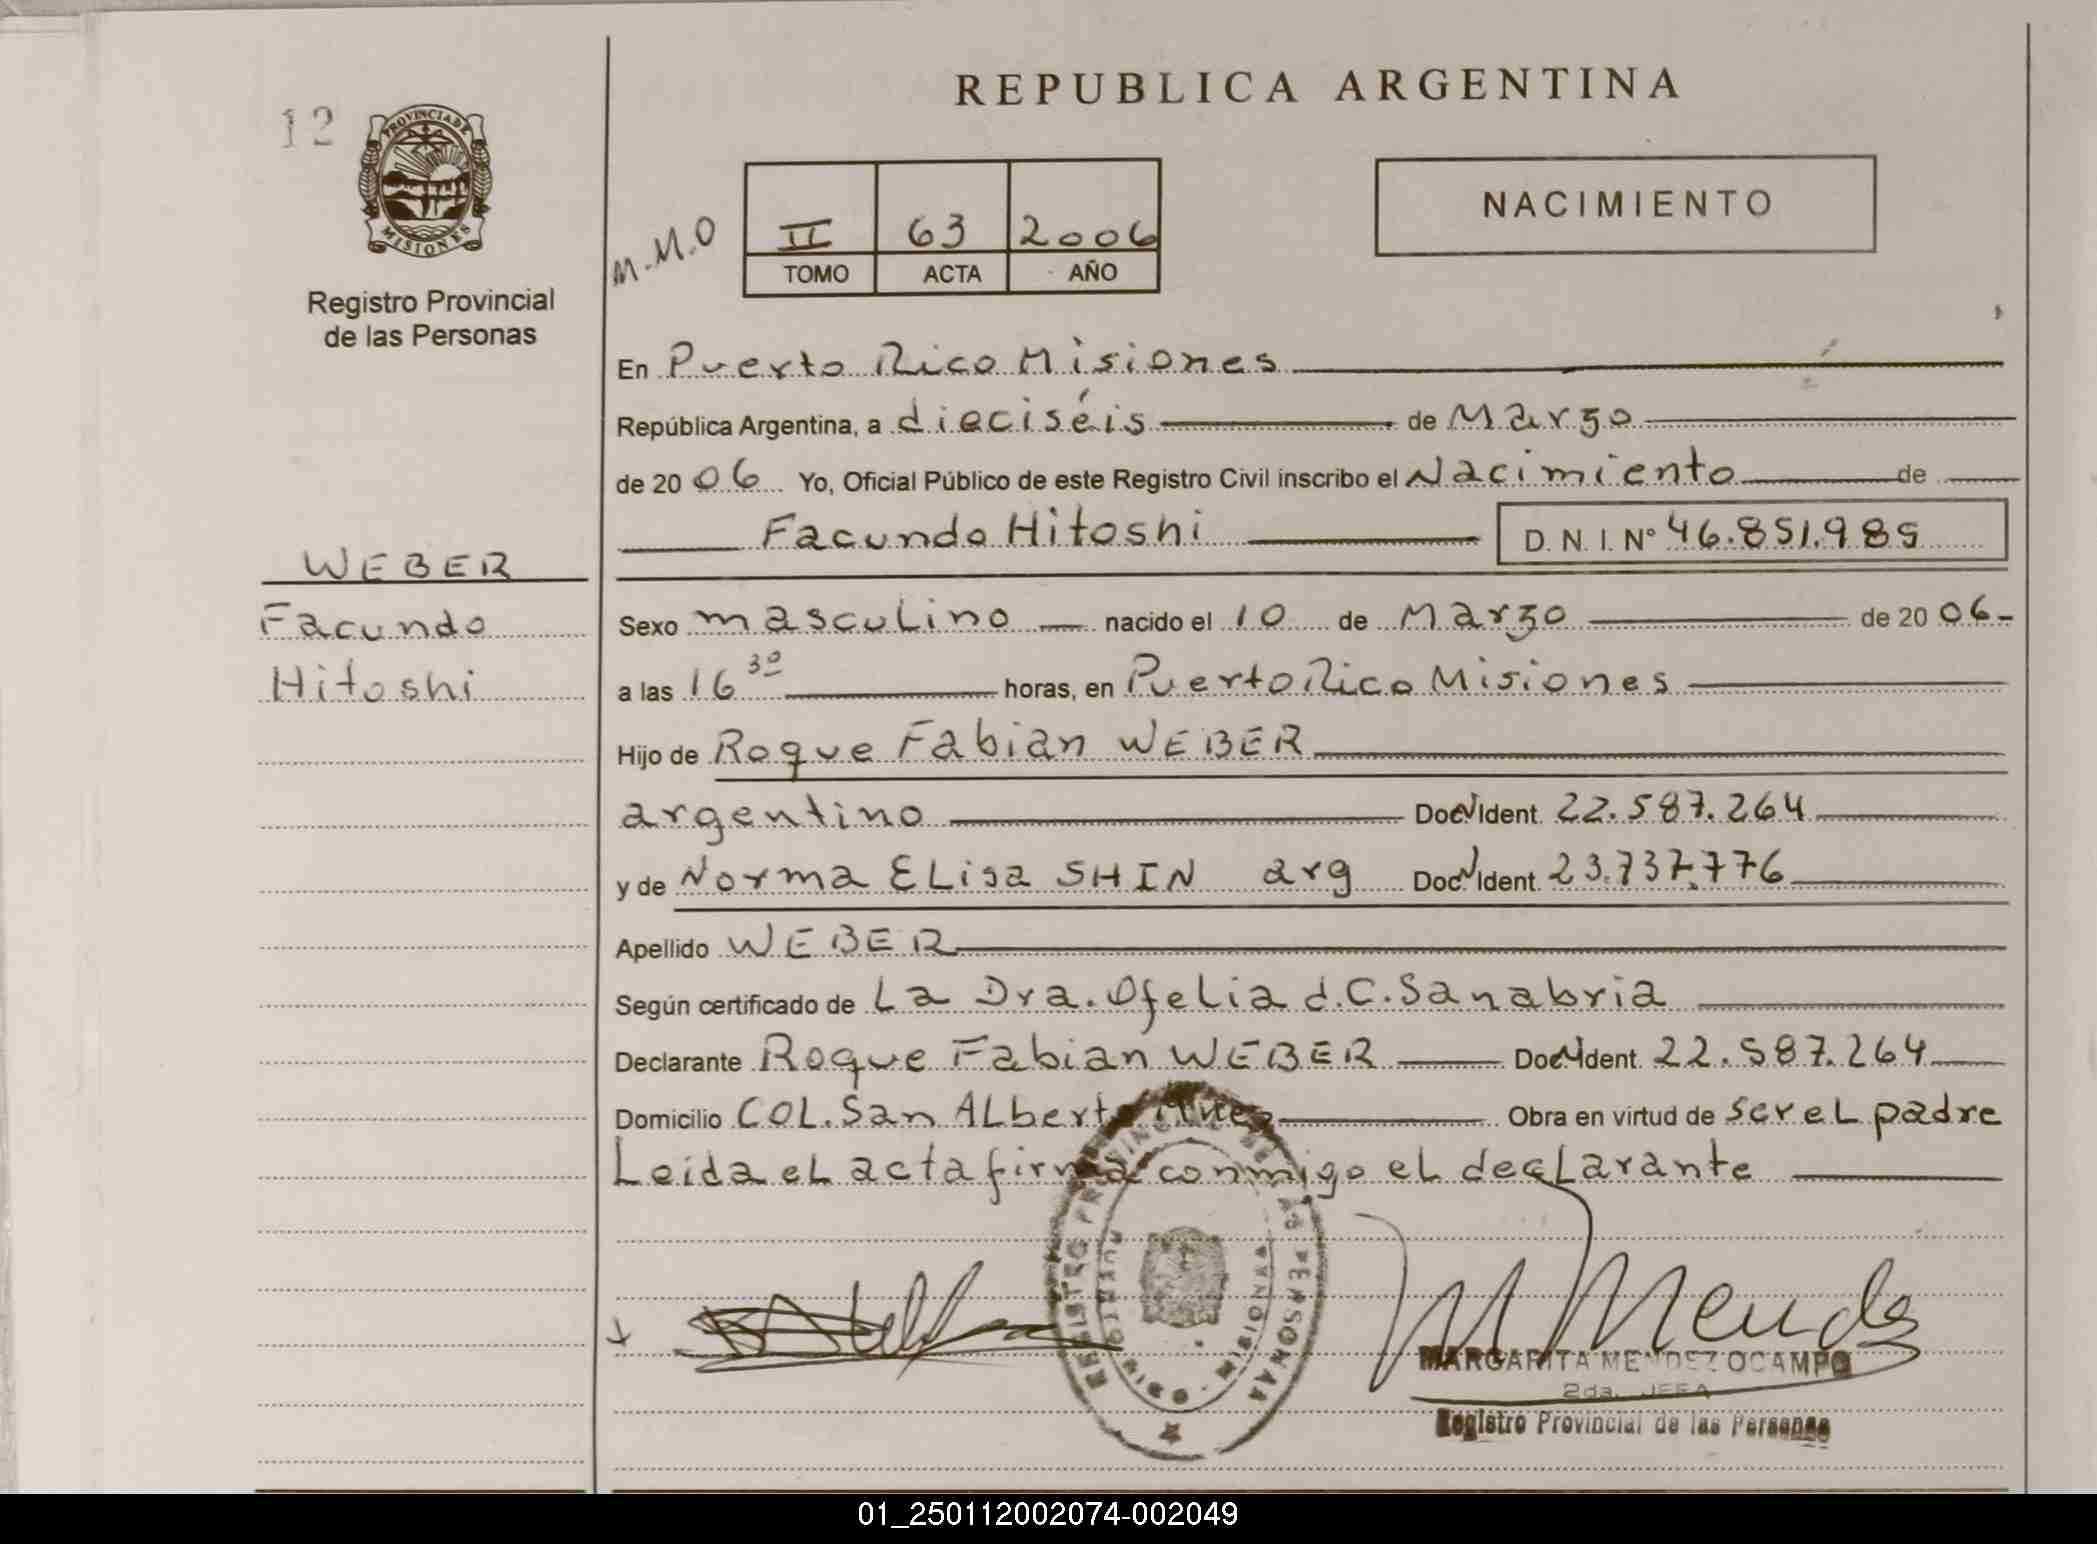 REPUBLICA ARGENTINA
12
PROVINCIA DE
MISIONES
Registro Provincial
de las Personas
M.M.O
II 63 2006
TOMO ACTA AÑO
NACIMIENTO
En Puerto Rico Misiones
República Argentina, a dieciséis de Marzo
de 2006 Yo, Oficial Público de este Registro Civil inscribo el Nacimiento de
Facundo Hitoshi D. N. I. Nº 46.851.985
WEBER
Facundo
Hitoshi
Sexo masculino nacido el 10 de Marzo de 2006-
a las 16 30 horas, en Puerto Rico Misiones
Hijo de Roque Fabian WEBER
argentino Doc N Ident. 22.587.264
y de Norma ELisa SHIN arg Doc N Ident. 23.737.776
Apellido WEBER
Según certificado de La Dra. Ofelia d.C. Sanabria
Declarante Roque Fabian WEBER Doc N Ident. 22.587.264
Domicilio COL. San ALberto Mnes Obra en virtud de ser eL padre
Leida eL acta firma conmigo eL decLarante
REGISTRO PROVINCIAL DE LAS PERSONAS
PUERTO RICO MISIONES
M Mendez
MARGARITA MENDEZ OCAMPO
2da. JEFA
Registro Provincial de las Personas
01_250112002074-002049